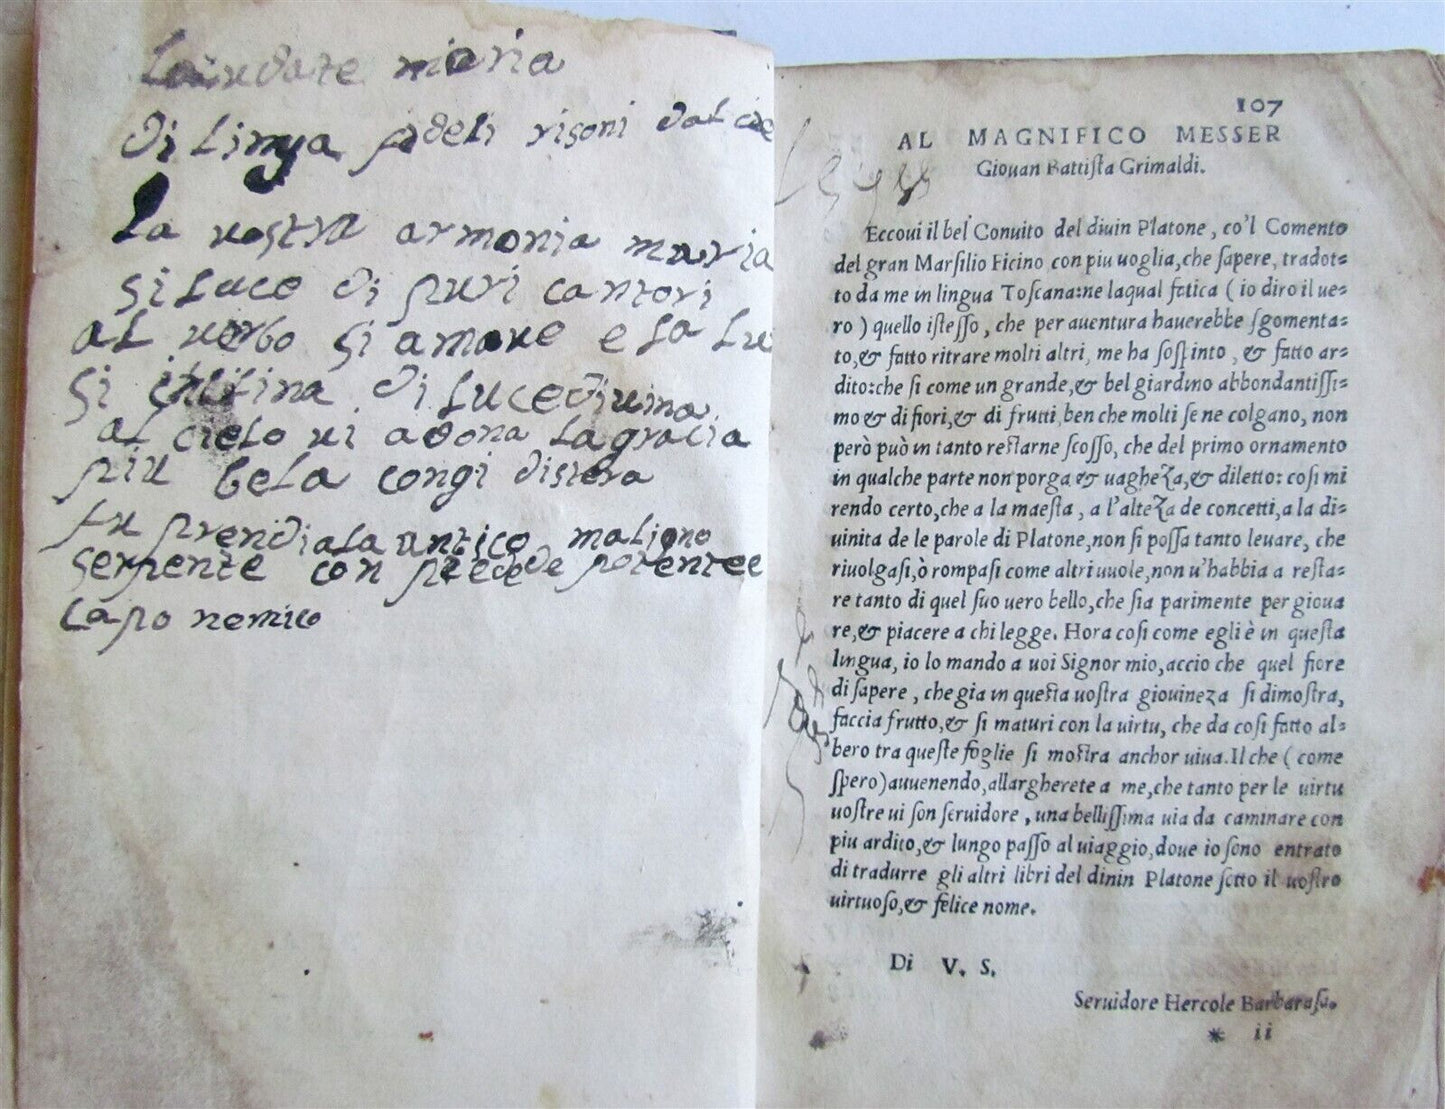 Laudate maria
di lingua fideli risoni dal cie
La vostra armonia maria
si luce di puri cantori
al verbo si amare e la lu
si di luce divina
al cielo vi adona la gracia
piu bela congi distera
tu prendi la antico maligno
serpente con piede potente e
capo nemico
107
AL MAGNIFICO MESSER
Giouan Battiſta Grimaldi.
Eccoui il bel Conuito del diuin Platone, co'l Comento
del gran Marſilio Ficino con piu uoglia, che ſapere, tradot=
to da me in lingua Toſcana: ne laqual fatica ( io diro il ue=
ro ) quello iſteſſo, che per auentura hauerebbe ſgomenta=
to, & fatto ritrare molti altri, me ha ſoſpinto, & fatto ar=
dito: che ſi come un grande, & bel giardino abbondantiſſi=
mo & di fiori, & di frutti, ben che molti ſe ne colgano, non
però può in tanto reſtarne ſcoſſo, che del primo ornamento
in qualche parte non porga & uagheza, & diletto: coſi mi
rendo certo, che a la maeſta, a l'alteza de concetti, a la di=
uinita de le parole di Platone, non ſi poſſa tanto leuare, che
riuolgaſi, ò rompaſi come altri uuole, non u'habbia a reſta=
re tanto di quel ſuo uero bello, che ſia parimente per gioua
re, & piacere a chi legge. Hora coſi come egli è in queſta
lingua, io lo mando a uoi Signor mio, accio che quel fiore
di ſapere, che gia in queſta uoſtra giouineza ſi dimoſtra,
faccia frutto, & ſi maturi con la uirtu, che da coſi fatto al=
bero tra queſte foglie ſi moſtra anchor uiua. Il che ( come
ſpero) auuenendo, allargherete a me, che tanto per le uirtu
uoſtre ui ſon ſeruidore, una belliſſima uia da caminare con
piu ardito, & lungo paſſo al uiaggio, doue io ſono entrato
di tradurre gli altri libri del diuin Platone ſotto il uoſtro
uirtuoſo, & felice nome.
Di V. S.
Seruidore Hercole Barbaraſa.
* ii